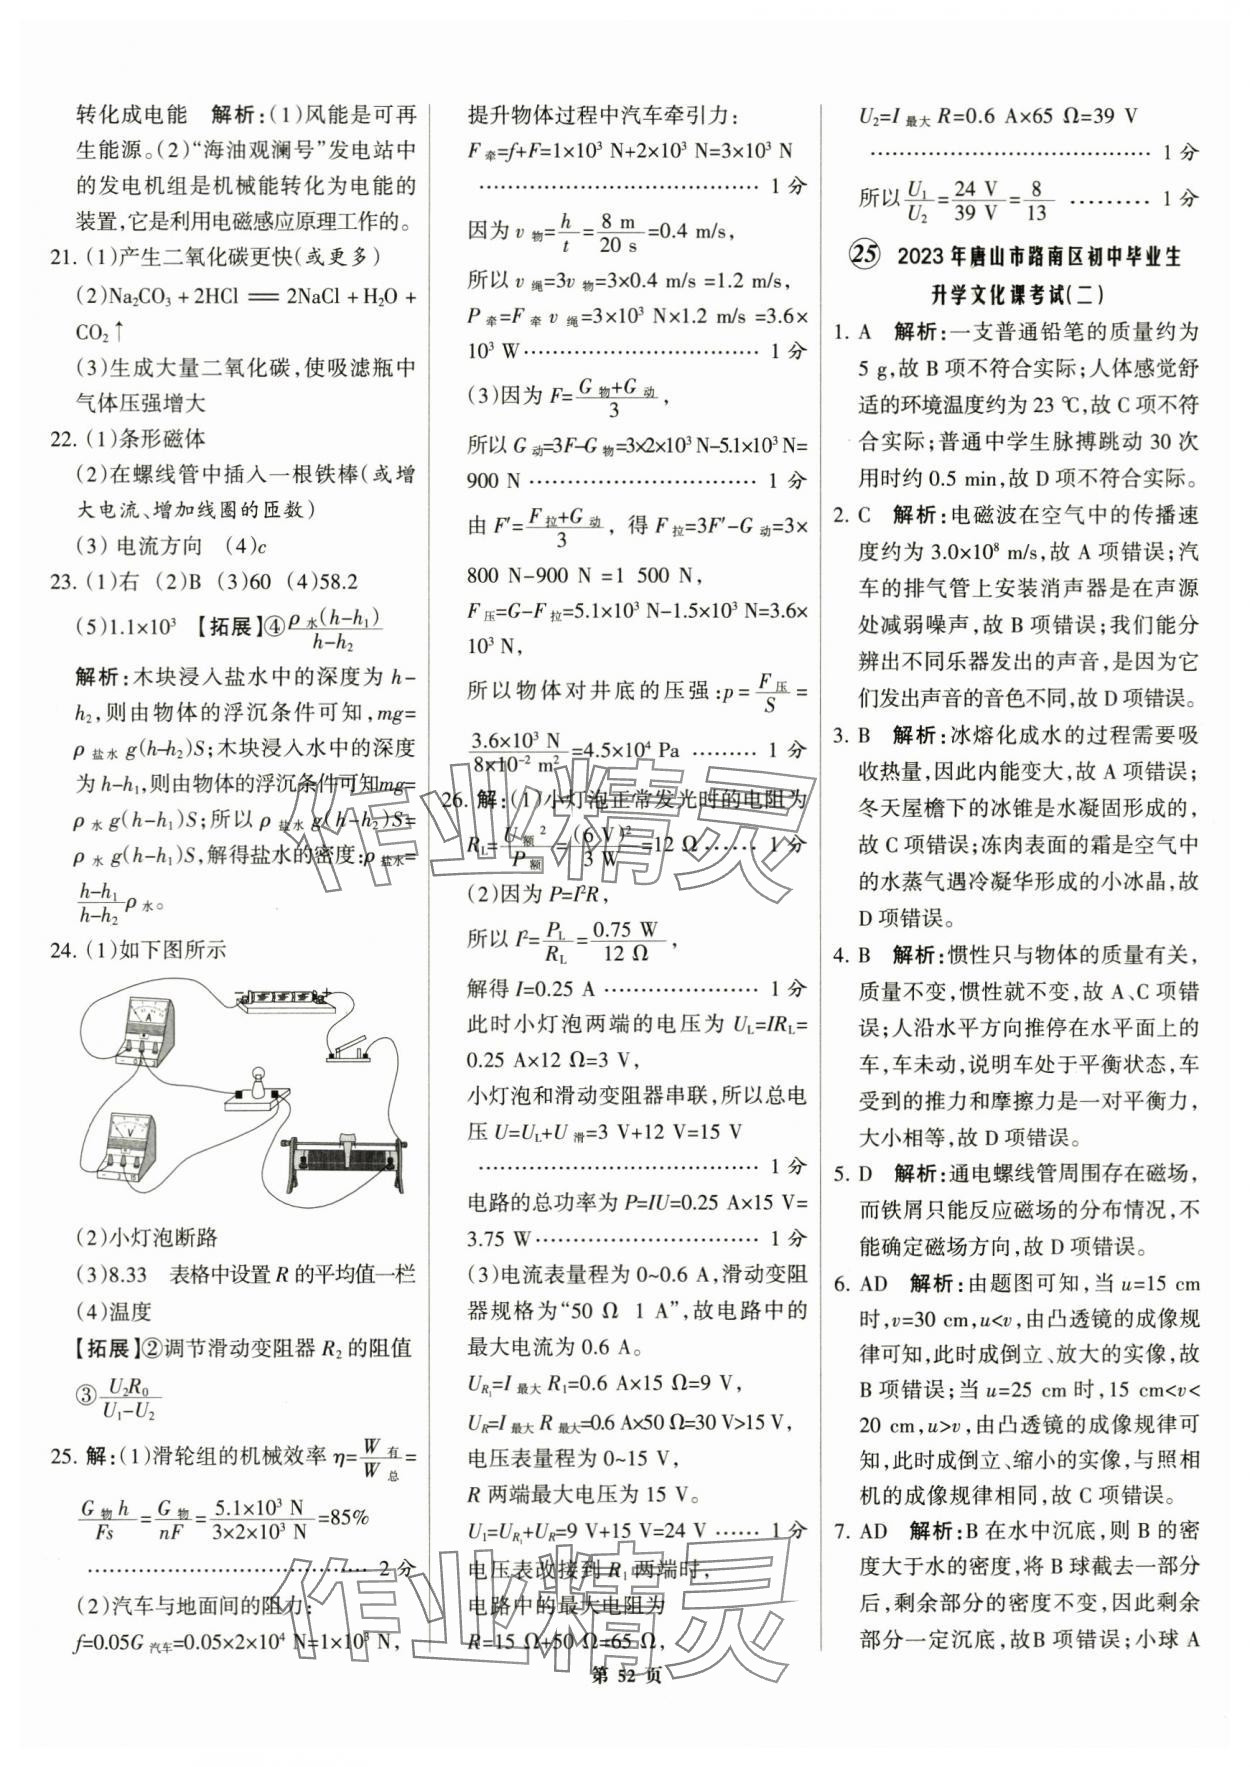 转化成电能　解析:(1)风能是可再
生能源。(2)“海油观澜号”发电站中
的发电机组是机械能转化为电能的
装置,它是利用电磁感应原理工作的。
21. (1)产生二氧化碳更快(或更多)
(2)Na₂CO₃+2HCl══2NaCl+H₂O+
CO₂↑
(3)生成大量二氧化碳,使吸滤瓶中
气体压强增大
22. (1)条形磁体
(2)在螺线管中插入一根铁棒(或增
大电流、增加线圈的匝数)
(3) 电流方向　(4)c
23. (1)右　(2)B　(3)60　(4)58.2
(5)1.1×10³　【拓展】④ρ水(h-h₁)/(h-h₂)
解析:木块浸入盐水中的深度为 h-
h₂,则由物体的浮沉条件可知,mg=
ρ盐水g(h-h₂)S;木块浸入水中的深度
为h-h₁,则由物体的浮沉条件可知mg=
ρ水g(h-h₁)S;所以ρ盐水g(h-h₂)S=
ρ水g(h-h₁)S,解得盐水的密度:ρ盐水=
(h-h₁)/(h-h₂)ρ水。
24. (1)如下图所示
- +
A
V
(2)小灯泡断路
(3)8.33　表格中设置 R 的平均值一栏
(4)温度
【拓展】②调节滑动变阻器 R₂ 的阻值
③U₂R₀/(U₁-U₂)
25. 解:(1)滑轮组的机械效率 η=W有/W总=
G物h/Fs=G物/nF=5.1×10³ N/(3×2×10³ N)=85%
…………………………………… 2 分
(2)汽车与地面间的阻力:
f=0.05G汽车=0.05×2×10⁴ N=1×10³ N,
提升物体过程中汽车牵引力:
F牵=f+F=1×10³ N+2×10³ N=3×10³ N
………………………………… 1 分
因为 v物=h/t=8 m/20 s=0.4 m/s,
所以 v绳=3v物=3×0.4 m/s =1.2 m/s,
P牵=F牵v绳=3×10³ N×1.2 m/s =3.6×
10³ W…………………………… 1 分
(3)因为 F=(G物+G动)/3,
所以 G动=3F-G物=3×2×10³ N-5.1×10³ N=
900 N…………………………… 1 分
由 F′=(F拉+G动)/3，得 F拉=3F′-G动=3×
800 N-900 N =1 500 N,
F压=G-F拉=5.1×10³ N-1.5×10³ N=3.6×
10³ N,
所以物体对井底的压强:p=F压/S=
3.6×10³ N/(8×10⁻² m²)=4.5×10⁴ Pa ……… 1 分
26. 解:(1)小灯泡正常发光时的电阻为
R_L=U额²/P额=(6 V)²/3 W=12 Ω …… 1 分
(2)因为 P=I²R,
所以 I²=P_L/R_L=0.75 W/12 Ω,
解得 I=0.25 A ………………… 1 分
此时小灯泡两端的电压为 U_L=IR_L=
0.25 A×12 Ω=3 V,
小灯泡和滑动变阻器串联,所以总电
压 U=U_L+U滑=3 V+12 V=15 V
………………………………… 1 分
电路的总功率为 P=IU=0.25 A×15 V=
3.75 W………………………… 1 分
(3)电流表量程为 0~0.6 A,滑动变阻
器规格为“50 Ω　1 A”,故电路中的
最大电流为 0.6 A。
U_R₁=I最大R₁=0.6 A×15 Ω=9 V,
U_R=I最大R最大=0.6 A×50 Ω=30 V>15 V,
电压表量程为 0~15 V,
R 两端最大电压为 15 V。
U₁=U_R₁+U_R=9 V+15 V=24 V …… 1 分
电压表改接到 R₁ 两端时,
电路中的最大电阻为
R=15 Ω+50 Ω=65 Ω,
U₂=I最大R=0.6 A×65 Ω=39 V
………………………………… 1 分
所以U₁/U₂=24 V/39 V=8/13 ……… 1 分
㉕ 2023年唐山市路南区初中毕业生
升学文化课考试(二)
1. A　解析:一支普通铅笔的质量约为
5 g,故 B 项不符合实际;人体感觉舒
适的环境温度约为 23 ℃,故 C 项不符
合实际;普通中学生脉搏跳动 30 次
用时约 0.5 min,故 D 项不符合实际。
2. C　解析:电磁波在空气中的传播速
度约为 3.0×10⁸ m/s,故 A 项错误;汽
车的排气管上安装消声器是在声源
处减弱噪声,故 B 项错误;我们能分
辨出不同乐器发出的声音,是因为它
们发出声音的音色不同,故 D 项错误。
3. B　解析:冰熔化成水的过程需要吸
收热量,因此内能变大,故 A 项错误;
冬天屋檐下的冰锥是水凝固形成的,
故 C 项错误;冻肉表面的霜是空气中
的水蒸气遇冷凝华形成的小冰晶,故
D 项错误。
4. B　解析:惯性只与物体的质量有关,
质量不变,惯性就不变,故 A、C 项错
误;人沿水平方向推停在水平面上的
车,车未动,说明车处于平衡状态,车
受到的推力和摩擦力是一对平衡力,
大小相等,故 D 项错误。
5. D　解析:通电螺线管周围存在磁场,
而铁屑只能反应磁场的分布情况,不
能确定磁场方向,故 D 项错误。
6. AD　解析:由题图可知,当 u=15 cm
时,v=30 cm,u<v,由凸透镜的成像规
律可知,此时成倒立、放大的实像,故
B 项错误;当 u=25 cm 时,15 cm<v<
20 cm,u>v,由凸透镜的成像规律可
知,此时成倒立、缩小的实像,与照相
机的成像规律相同,故 C 项错误。
7. AD　解析:B 在水中沉底,则 B 的密
度大于水的密度,将 B 球截去一部分
后,剩余部分的密度不变,因此剩余
部分一定沉底,故B 项错误;小球 A
第 52 页
作业精灵
作业精灵